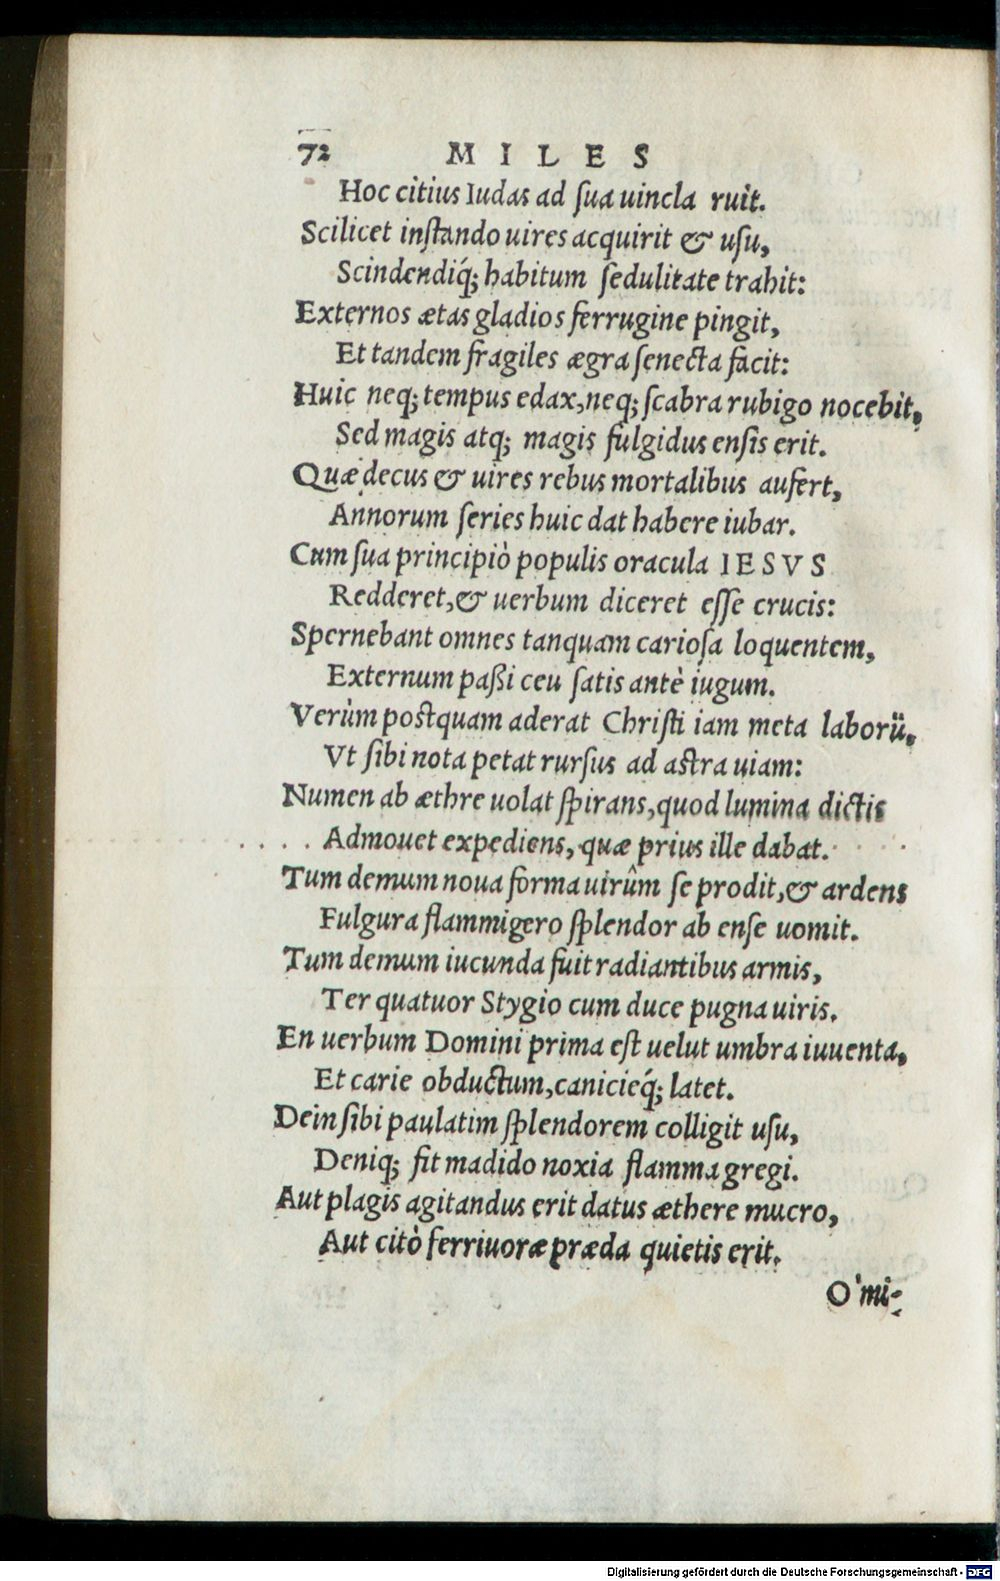 72 MILES
Hoc citius Iudas ad ſua uincla ruit.
Scilicet inſtando uires acquirit & uſu,
Scindendiq́; habitum ſedulitate trahit:
Externos ætas gladios ferrugine pingit,
Et tandem fragiles ægra ſenecta facit:
Huic neq; tempus edax, neq; ſcabra rubigo nocebit,
Sed magis atq; magis fulgidus enſis erit.
Quæ decus & uires rebus mortalibus aufert,
Annorum ſeries huic dat habere iubar.
Cum ſua principiò populis oracula IESVS
Redderet, & uerbum diceret eſſe crucis:
Spernebant omnes tanquam carioſa loquentem,
Externum paßi ceu ſatis antè iugum.
Verùm postquam aderat Chriſti iam meta laborũ,
Vt ſibi nota petat rurſus ad astra uiam:
Numen ab æthre uolat ſpirans, quod lumina dictis
Admouet expediens, quæ prius ille dabat.
Tum demum noua forma uirûm ſe prodit, & ardens
Fulgura flammigero ſplendor ab enſe uomit.
Tum demum iucunda fuit radiantibus armis,
Ter quatuor Stygio cum duce pugna uiris.
En uerbum Domini prima eſt uelut umbra iuuenta,
Et carie obductum, canicieq́; latet.
Dein ſibi paulatim ſplendorem colligit uſu,
Deniq; fit madido noxia flamma gregi.
Aut plagis agitandus erit datus æthere mucro,
Aut citò ferriuoræ præda quietis erit.
O' mi-
Digitalisierung gefördert durch die Deutsche Forschungsgemeinschaft - DFG